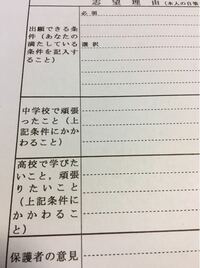 志望理由（本人の自筆
出願できる条
件（あなたの
満たしている
条件を記入す
ること）
必須
選択
中学校で頑張
ったこと（上
記条件にかか
わること）
高校で学びた
いこと，頑張
りたいこと（上
記条件にか
かわるこ
と）
保護者の意見